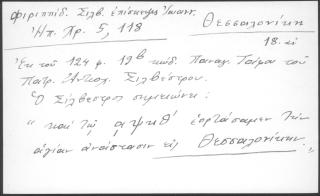 Φιριππίδ. Σιλβ. ἐπίσκεψις Ἰωανν. Θεσσαλονίκη
Ἠπ. Χρ. 5, 118
18. αἰ
Ἐκ τοῦ 124 φ. 12β κώδ. Παναγ. Τάφου τοῦ
Πατρ. Ἀντιοχ. Σιλβέστρου.
Ὁ Σίλβεστρος σημειώνει:
"καὶ τῷ αψκθʹ ἑορτάσαμεν τὴν
ἁγίαν ἀνάστασιν εἰς Θεσσαλονίκην"